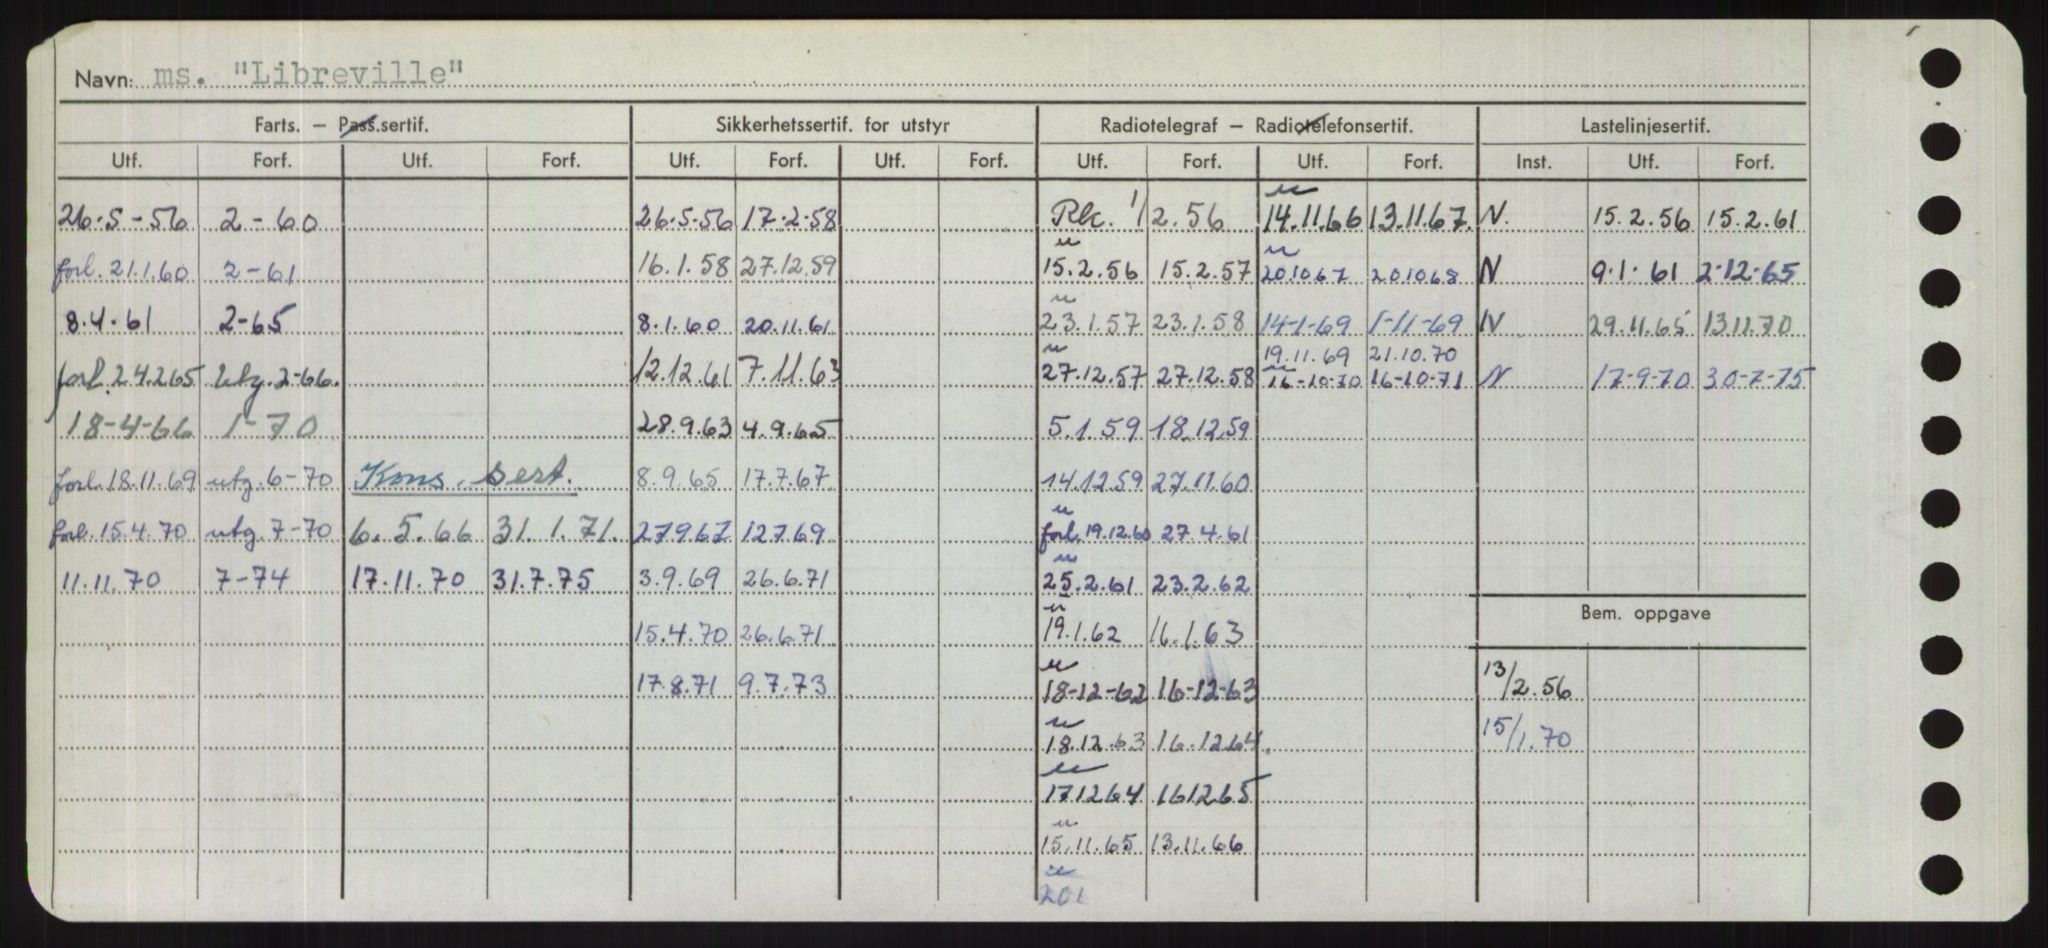 Navn: ms. "Libreville"
Farts. — Pass.sertif. Sikkerhetssertif. for utstyr Radiotelegraf — Radiotelefonsertif. Lastelinjesertif.
Utf. Forf. Utf. Forf. Utf. Forf. Utf. Forf. Utf. Forf. Utf. Forf. Inst. Utf. Forf.
26-5-56 2-60 26-5-56 17-2-58 Rk. 1/2.56 u 14.11.66 13.11.67. N. 15.2.56 15.2.61
forl. 21.1.60 2-61 16.1.58 27.12.59 u 15.2.56 15.2.57 u 201067 201068 N 9.1.61 2-12-65
8.4.61 2-65 8.1.60 20.11.61 u 23.1.57 23.1.58 14-1-69 1-11-69 N 29.11.65 13.11.70
19.11.69 21.10.70
forl. 24.265 utg. 2-66. 12.12.61 7.11.63 u 27.12.57 27.12.58 u 16-10-70 16-10-71 N 17-9-70 30-7-75
18-4-66 1-70 28.9.63 4.9.65 5.1.59 18.12.59
forl. 18.11.69 utg. 6-70 Kons. sert. 8.9.65 17.7.67 14.12.59 27.11.60
forl. 15.4.70 utg. 7-70 6.5.66 31.1.71. 27967 12769 u forl. 19.12.60 27.4.61
11.11.70 7-74 17.11.70 31.7.75 3.9.69 26.6.71 u 25.2.61 23.2.62
Bem. oppgave
15.4.70 26.6.71 u 19.1.62 16.1.63
17.8.71 9.7.73 u 18-12-62 16-12-63 13/2.56
u 18.12.63 16.1264. 15/1.70
u 171264 161265
u 15.11.65 13.11.66
u 201